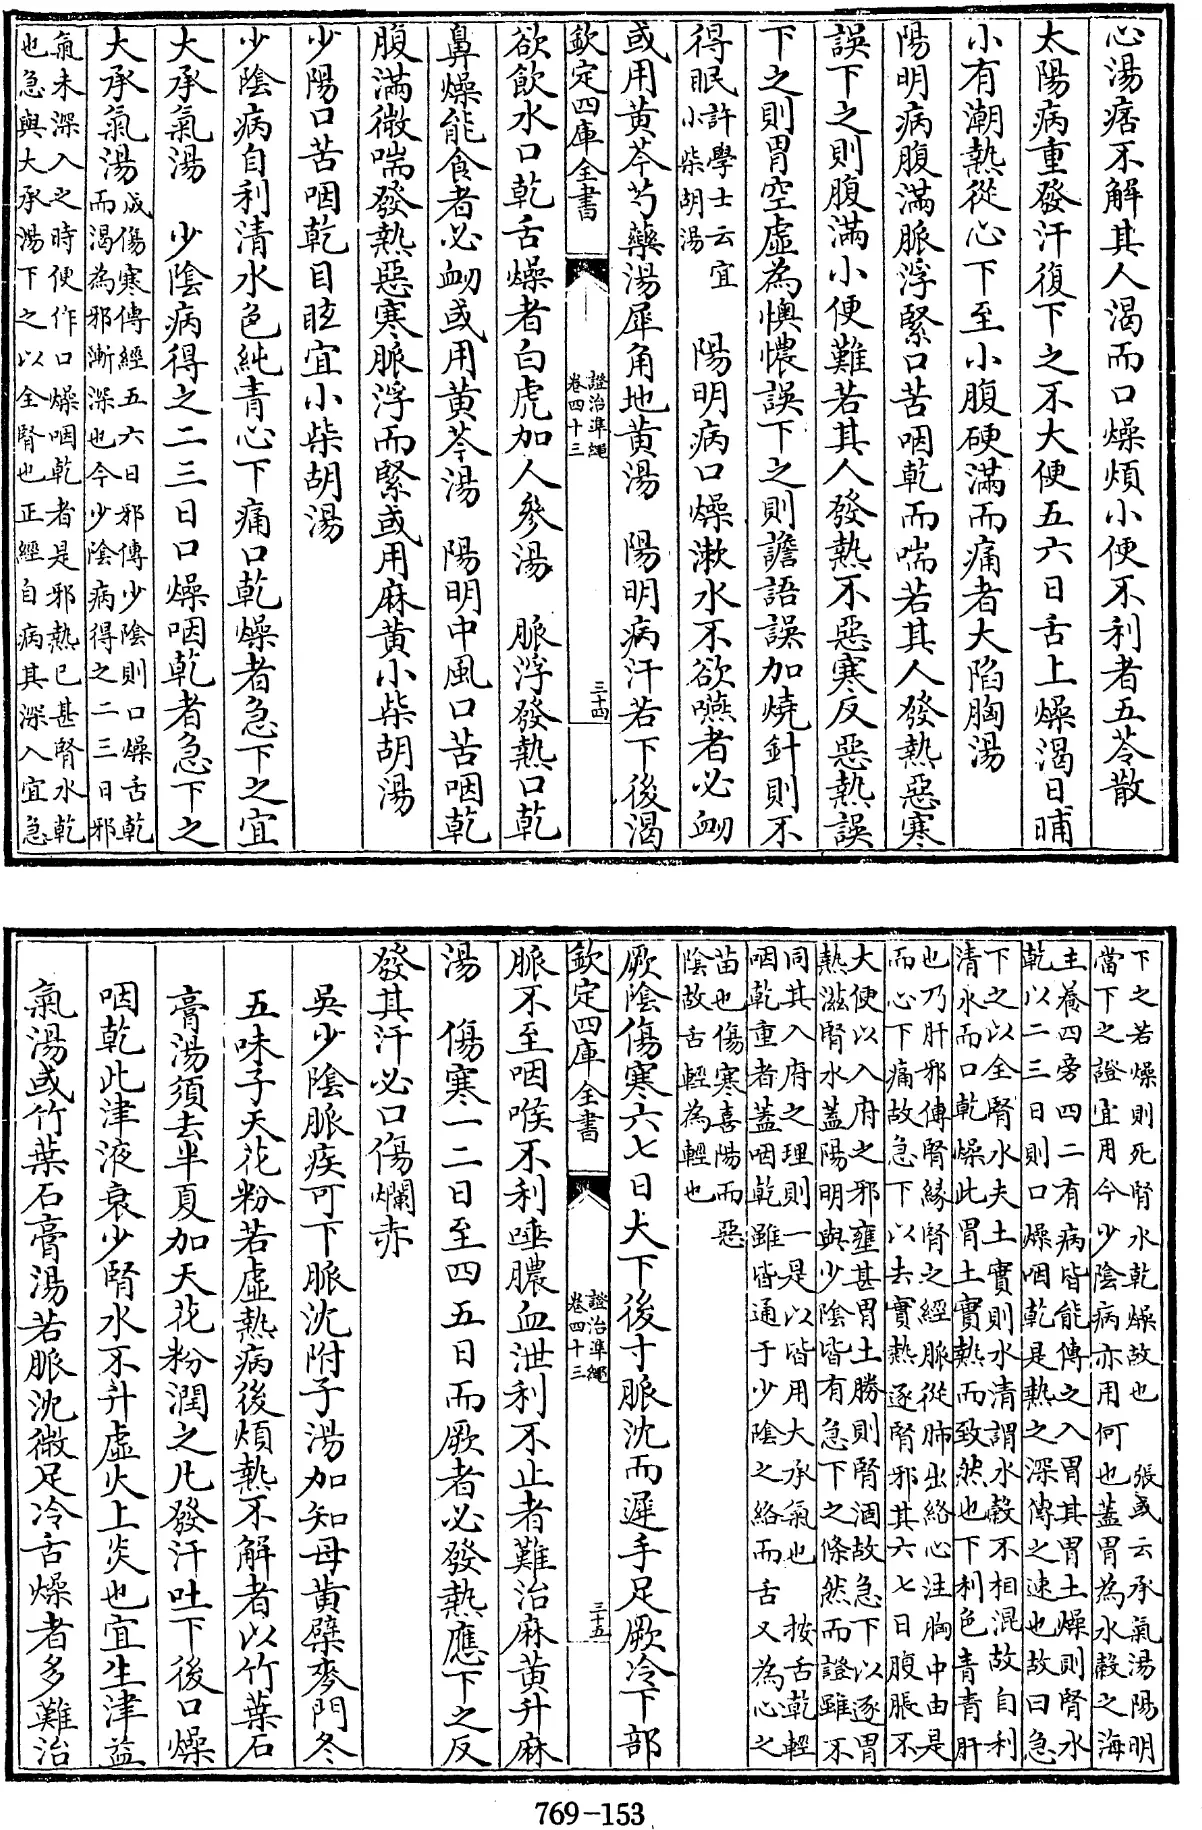 心湯痞不解其人渴而口燥煩小便不利者五苓散
太陽病重發汗復下之不大便五六日舌上燥渴日晡
小有潮熱從心下至小腹硬滿而痛者大陷胸湯
陽明病腹滿脈浮緊口苦咽乾而喘若其人發熱惡寒
誤下之則腹滿小便難若其人發熱不惡寒反惡熱誤
下之則胃空虛為懊憹誤下之則譫語誤加燒針則不
得眠許學士云宜小柴胡湯 陽明病口燥漱水不欲嚥者必衂
或用黄芩芍藥湯犀角地黄湯 陽明病汗若下後渴
欽定四庫全書 證治準繩 卷四十三 三十四
欲飲水口乾舌燥者白虎加人參湯 脈浮發熱口乾
鼻燥能食者必衂或用黄芩湯 陽明中風口苦咽乾
腹滿微喘發熱惡寒脈浮而緊或用麻黄小柴胡湯
少陽口苦咽乾目眩宜小柴胡湯
少陰病自利清水色純青心下痛口乾燥者急下之宜
大承氣湯 少陰病得之二三日口燥咽乾者急下之
大承氣湯成傷寒傳經五六日邪傳少陰則口燥舌乾
而渴為邪漸深也今少陰病得之二三日邪
氣未深入之時便作口燥咽乾者是邪熱已甚腎水乾
也急與大承湯下之以全腎也正經自病其深入宜急
下之若燥則死腎水乾燥故也 張或云承氣湯陽明
當下之證宜用今少陰病亦用何也蓋胃為水穀之海
主養四旁四二有病皆能傳之入胃其胃土燥則腎水
乾以二三日則口燥咽乾是熱之深傳之速也故曰急
下之以全腎水夫土實則水清謂水穀不相混故自利
清水而口乾燥此胃土實熱而致然也下利色青青肝
也乃肝邪傳腎緣腎之經脈從肺出絡心注胸中由是
而心下痛故急下以去實熱逐腎邪其六七日腹脹不
大便以入府之邪壅甚胃土勝則腎涸故急下以逐胃
熱滋腎水蓋陽明與少陰皆有急下之條然而證雖不
同其入府之理則一是以皆用大承氣也 按舌乾輕
咽乾重者蓋咽乾雖皆通于少陰之絡而舌又為心之
苗也傷寒喜陽而惡
陰故舌輕為輕也
厥陰傷寒六七日大下後寸脈沈而遲手足厥冷下部
欽定四庫全書 證治準繩 卷四十三 三十五
脈不至咽喉不利唾膿血泄利不止者難治麻黄升麻
湯 傷寒一二日至四五日而厥者必發熱應下之反
發其汗必口傷爛赤
吳少陰脈疾可下脈沈附子湯加知母黄蘗麥門冬
五味子天花粉若虛熱病後煩熱不解者以竹葉石
膏湯須去半夏加天花粉潤之凡發汗吐下後口燥
咽乾此津液衰少腎水不升虛火上炎也宜生津益
氣湯或竹葉石膏湯若脈沈微足冷舌燥者多難治
769-153